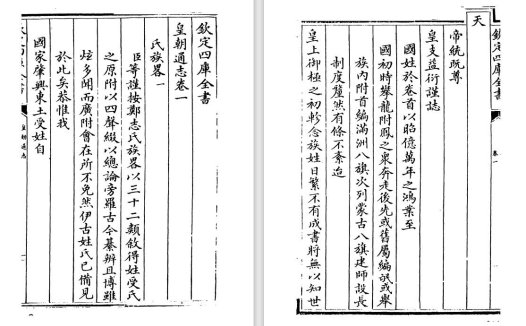 欽定四庫全書
皇朝通志卷一
氏族畧一
臣等謹按鄭志氏族畧以三十二類敘得姓受氏
之原附以四聲綴以總論旁羅古今綦辨且博雖
炫多聞而廣附會在所不免然伊古姓氏已備見
於此矣恭惟我
國家肇興東土受姓自
皇朝通志
欽定四庫全書
卷一
天
帝統既尊
皇支益衍謹誌
國姓於卷首以昭億萬年之鴻業至
國初時攀龍附鳳之衆奔走後先或舊屬編氓或舉
族內附首編滿洲八旗次列蒙古八旗建師設長
制度釐然有條不紊迨
皇上御極之初軫念族姓日繁不有成書將無以知世